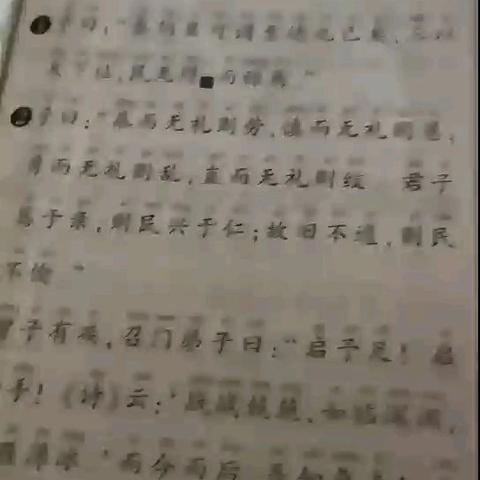 子曰：“泰伯其可谓至德也已矣，三以
天下让，民无得■而称焉。”
子曰：“恭而无礼则劳，慎而无礼则葸，
勇而无礼则乱，直而无礼则绞 君子
笃于亲，则民兴于仁；故旧不遗，则民
不偷”
曾子有疾，召门弟子曰：“启予足！启
手！《诗》云：‘战战兢兢，如临深渊，
履薄冰’而今而后